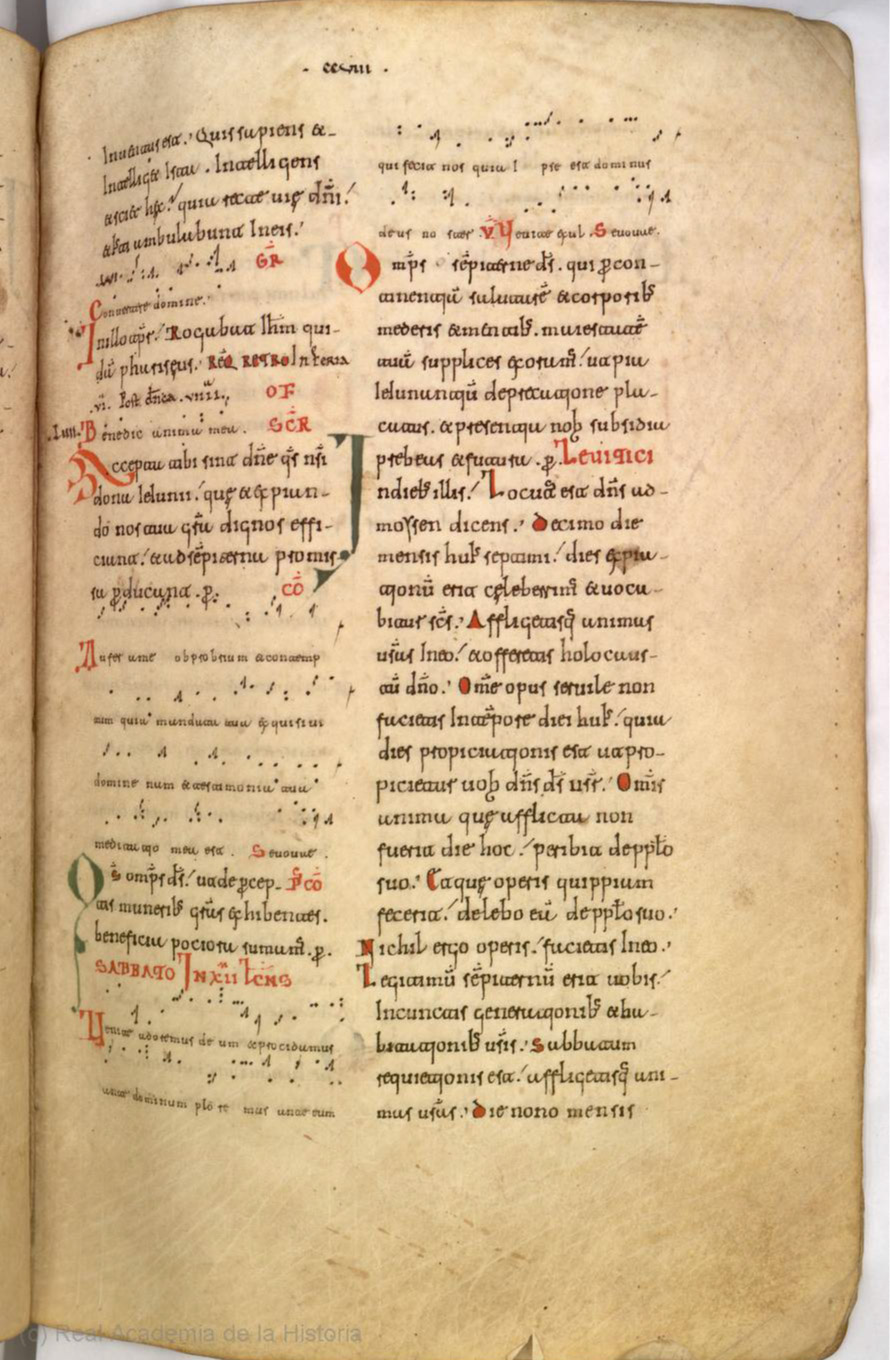 · ccxiiii ·
Quis sapiens &
Intelliget Ista. Intelligens
quia recte uię dñi.
ambulabunt In eis.
GR
Conuertere domine.
In illo tp̄r. Rogabat Ihm qui-
dã phariseus. REQ RETRO In feria
vi. Post dñca. OF
Benedic anima mea. SCR
Accepta tibi sint dñe qs nri
dona Ieiunii. quę & expian-
do nos tua gra dignos effi-
ciant. & ad sēpiterna promis-
sa pducant. p. CO
Aufer a me obprobrium & contemp
tum quia mandata tua exquisiui
domine nam & testimonia tua
meditatio mea est. Seuouae.
Qs omps ds. ut de pcep- PCO
tis munerib gras exhibentes.
beneficia potiora sumam. p.
SABBATO IN XII LCNS
Venite adoremus deum & procidamus
ante dominum plo re mus ante eum
qui fecit nos quia I pse est dominus
deus no ster V Venite exul. Seuouae.
Omps sēpiterne ds. qui p con-
tinentia salutare & corporib
mederis & mentib. maiestate
tua supplices exoram. ut pia
Ieiunantiu deprecatione pla-
catus. & presentia nob subsidia
prebeas & futura. p. LEVITICI
In dieb illis. Locutus est dns ad
mossen dicens. Decimo die
mensis huius septimi. dies expia-
tionu erit celeberrim & uoca-
bitur scs. Affligetisq animas
uras In eo. & offeretis holocaus-
tu dno. Ome opus seruile non
facietis In tepore diei hui. quia
dies propiciationis est ut pro-
picietur uob dns ds ur. Omis
anima quę afflicta non
fuerit die hoc. peribit de pplo
suo. Et quę operis quippiam
fecerit. delebo eu de pplo suo.
Nichil ergo operis. facietis In eo.
Legitimu sēpiternu erit uobis.
In cunctis generationib & ha-
bitationib uris. Sabbatum
requietionis est. affligetisq ani-
mas uras. Die nono mensis
(c) Real Academia de la Historia